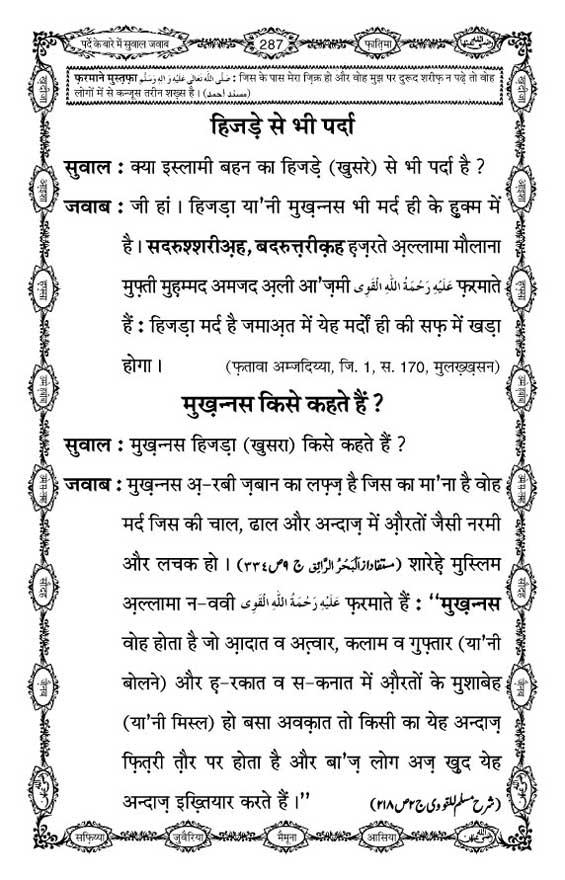 पर्दे के बारे में सुवाल जवाब
287
फ़ातिमा
फ़रमाने मुस्त़फ़ा صَلَّى اللهُ تَعَالٰى عَلَيْهِ وَاٰلِهٖ وَسَلَّم : जिस के पास मेरा ज़िक्र हो और वोह मुझ पर दुरूद शरीफ़ न पढ़े तो वोह
लोगों में से कन्जूस तरीन शख़्स है । (مسند احمد)
हिजड़े से भी पर्दा
सुवाल : क्या इस्लामी बहन का हिजड़े (खुसरे) से भी पर्दा है ?
जवाब : जी हां । हिजड़ा या'नी मुख़न्नस भी मर्द ही के हुक्म में
है । सदरुश्शरीअ़ह, बदरुत्तरीक़ह हज़रते अ़ल्लामा मौलाना
मुफ़्ती मुह़म्मद अमजद अ़ली आ'ज़मी عَلَيْهِ رَحْمَةُ اللهِ الْقَوِى फ़रमाते
हैं : हिजड़ा मर्द है जमाअ़त में येह मर्दों ही की सफ़ में खड़ा
होगा । (फ़तावा अम्जदिय्या, जि. 1, स. 170, मुलख़्ख़सन)
मुख़न्नस किसे कहते हैं ?
सुवाल : मुख़न्नस हिजड़ा (खुसरा) किसे कहते हैं ?
जवाब : मुख़न्नस अ़-रबी ज़बान का लफ़्ज़ है जिस का मा'ना है वोह
मर्द जिस की चाल, ढाल और अन्दाज़ में औ़रतों जैसी नरमी
और लचक हो । (مستفاد از اَلْبَحْرُ الرَّائِق ج ٩ ص ٣٣٤) शारेह़े मुस्लिम
अ़ल्लामा न-ववी عَلَيْهِ رَحْمَةُ اللهِ الْقَوِى फ़रमाते हैं : ‘‘मुख़न्नस
वोह होता है जो आ़दात व अत़्वार, कलाम व गुफ़्तार (या'नी
बोलने) और ह़-रकात व स-कनात में औ़रतों के मुशाबेह
(या'नी मिस्ल) हो बसा अवक़ात तो किसी का येह अन्दाज़
फ़ित़री त़ौर पर होता है और बा'ज़ लोग अज़ खुद येह
अन्दाज़ इख़्तियार करते हैं ।’’ (شرح مسلم للنووى ج ٢ ص ٢١٨)
सफ़िय्या
जुवैरिया
मैमूना
आसिया